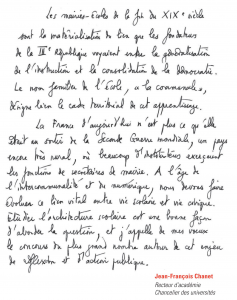 Les mairies-écoles de la fin du XIXe siècle
sont la matérialisation du lien que les fondateurs
de la IIIe République voyaient entre la généralisation
de l'instruction et la consolidation de la démocratie.
Le nom familier de l'École, « la communale »,
désigne bien le cadre territorial de cet apprentissage.
La France d'aujourd'hui n'est plus ce qu'elle
était au sortir de la Seconde Guerre mondiale, un pays
encore très rural, où beaucoup d'instituteurs exerçaient
les fonctions de secrétaires de mairie. À l'âge de
l'intercommunalité et du numérique, nous devons faire
évoluer ce lien vital entre vie scolaire et vie civique.
l'architecture scolaire est une bonne façon
d'aborder la question, et j'appelle de mes vœux
le concours du plus grand nombre autour de cet enjeu
de réflexion et d'action publique.
Jean-François Chanet
Recteur d'académie
Chancelier des universités